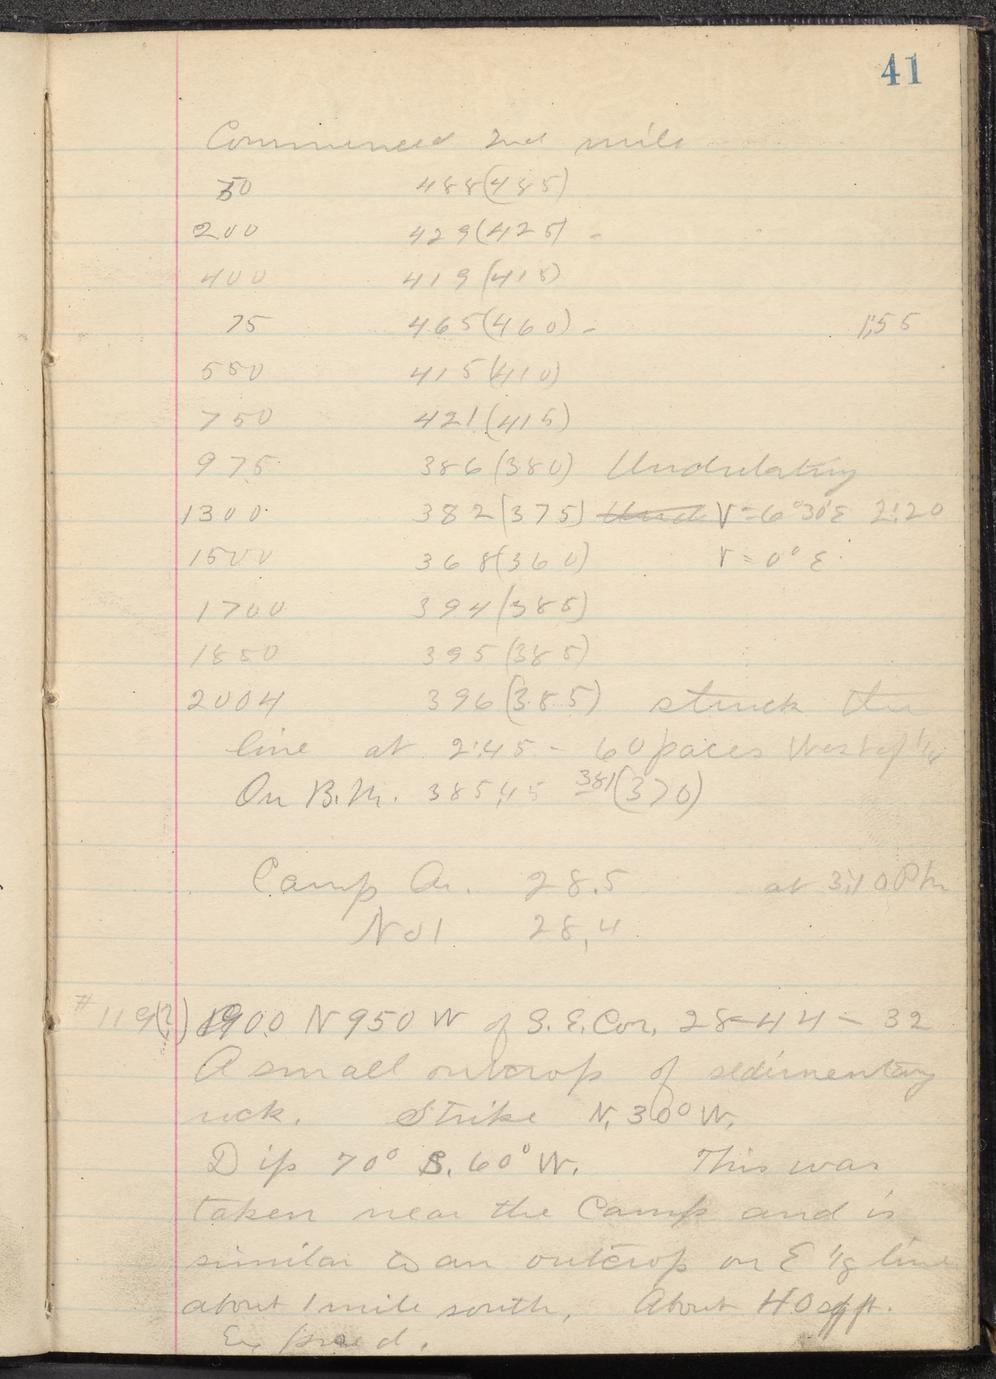 41
Commenced 2nd mile
50 488(485)
200 429(425) -
400 419(415)
75 465(460) - 1;55
550 415(410)
750 421(415)
975 386(380) Undulating
1300 382(375) Und V=6°30'E 2:20
1500 368(360) V=0°E
1700 394(385)
1850 395(385)
2004 396(385) struck the
line at 2:45 - 60 paces West of 1/4
On B.M. 385,45 381(370)
Camp An. 28.5 at 3:10 PM
No1 28,4
#119(?) 1900 N 950 W of S.E. Cor, 28-44-32
A small outcrop of sedimentary
rock. Strike N. 30° W.
Dip 70° S. 60° W. This was
taken near the Camp and is
similar to an outcrop on E 1/8 line
about 1 mile south. About 40 sq ft.
Exposed.